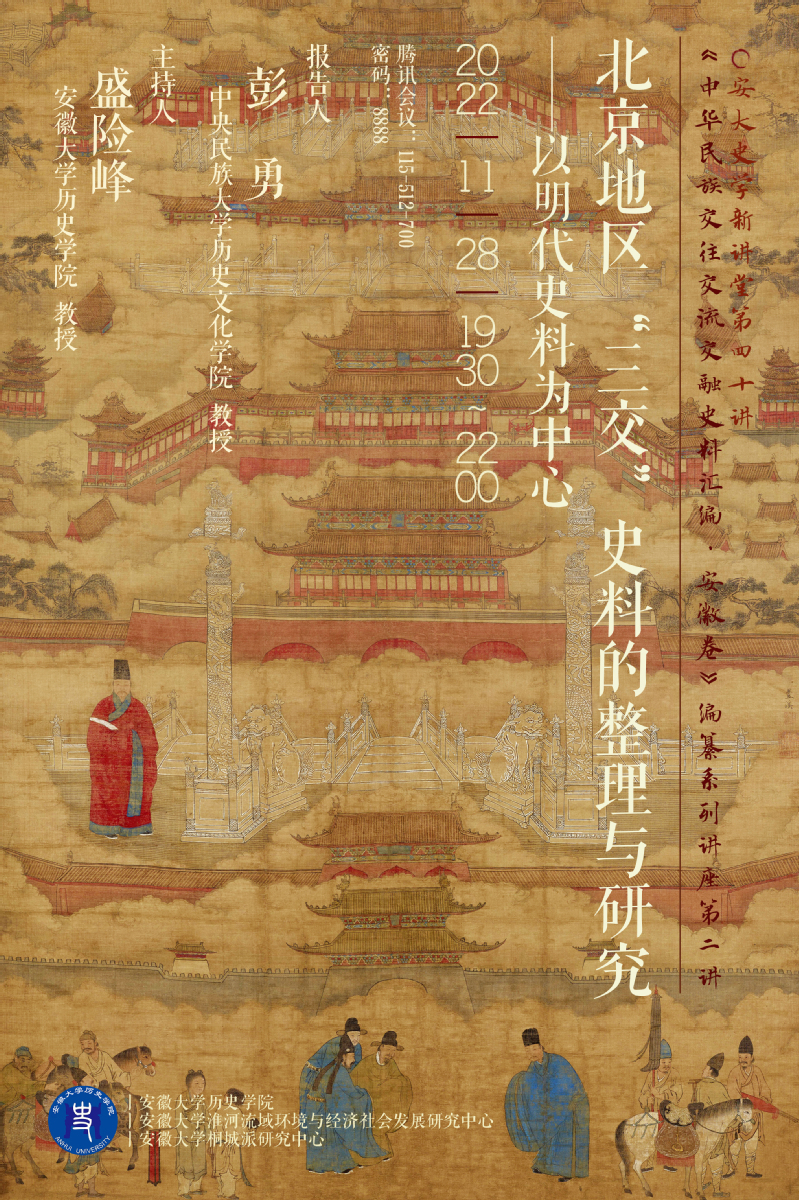 〇安大史学新讲堂第四十讲
《中华民族交往交流交融史料汇编·安徽卷》编纂系列讲座第二讲
北京地区“三交”史料的整理与研究
——以明代史料为中心
2022—11—28—1930~2200
腾讯会议：115-512-700
密码：8888
报告人
彭 勇
中央民族大学历史文化学院 教授
主持人
盛险峰
安徽大学历史学院 教授
安徽大学历史学院
ANHUI UNIVERSITY
安徽大学历史学院
安徽大学淮河流域环境与经济社会发展研究中心
安徽大学桐城派研究中心